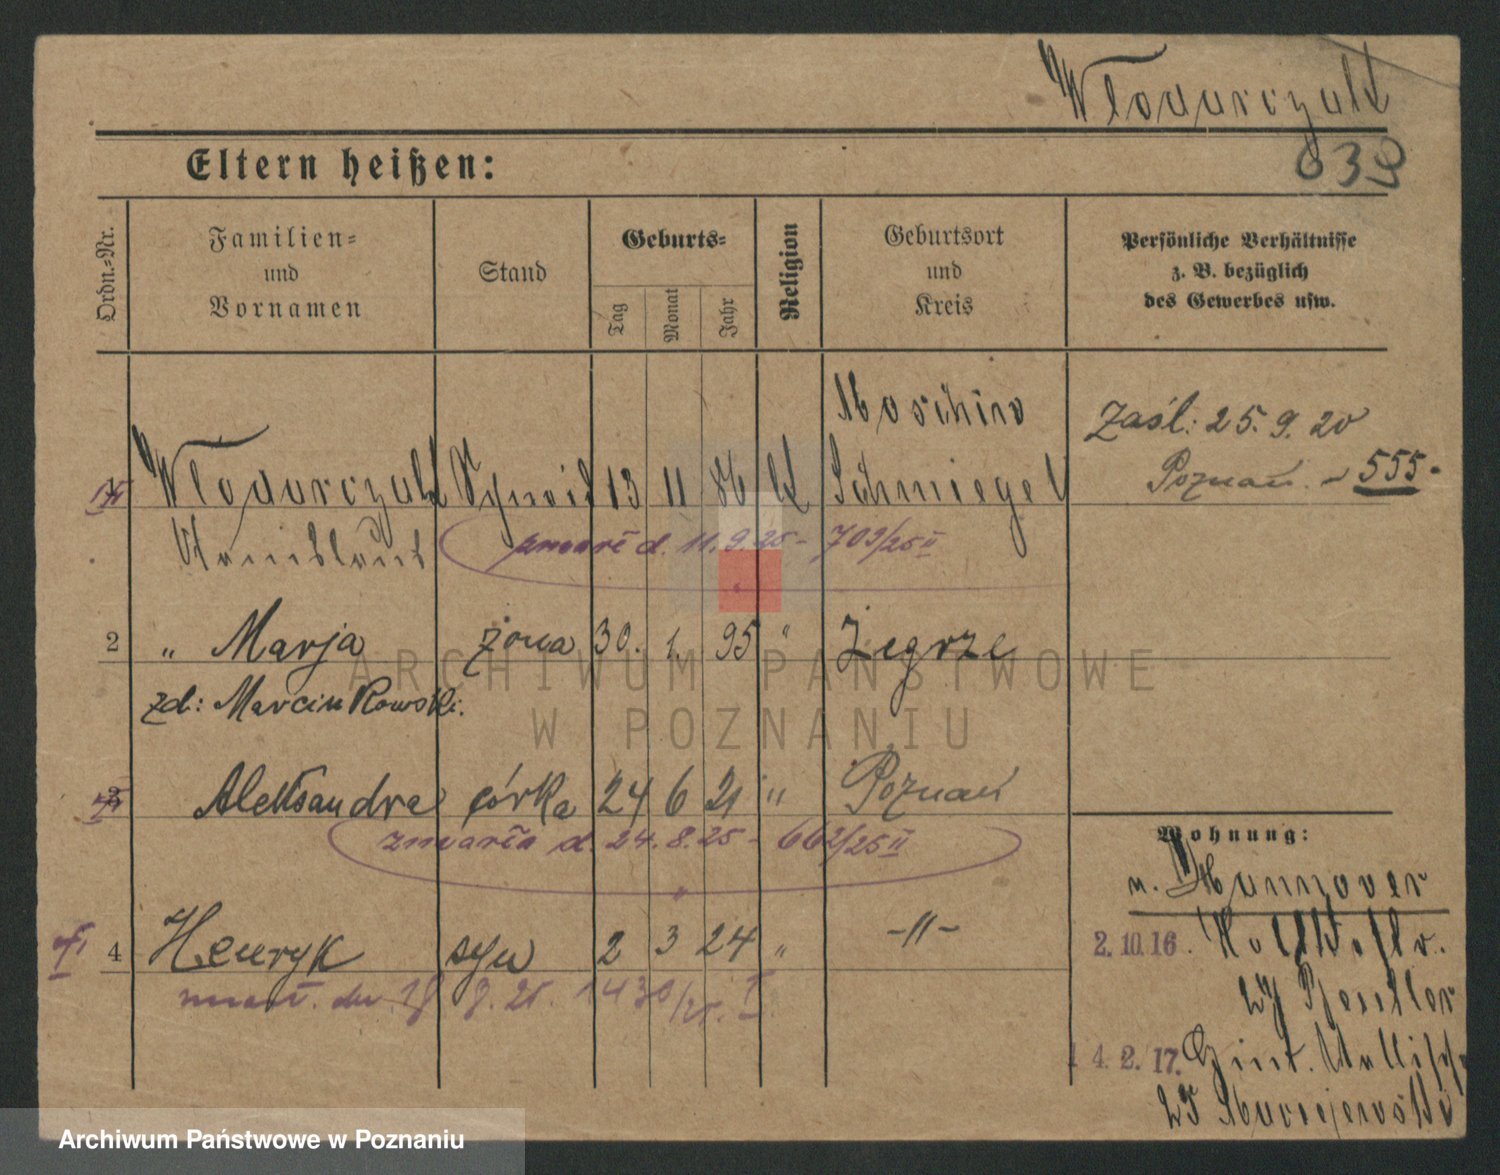 Włodarczak
639
Eltern heißen:
Ordn.-Nr.
Familien-
und
Vornamen
Stand
Geburts-
Tag
Monat
Jahr
Religion
Geburtsort
und
Kreis
Persönliche Verhältnisse
z. B. bezüglich
des Gewerbes usw.
Moschin
Włodarczak 13 11 86 k Schmiegel
Stanislaus
zmarł d. 11.9.25 - 709/25 II
zaśl: 25. 9. 20
Poznań - 555 -
2 " Marja żona 30. 1. 95 " Żegrze
zd: Marcinkowski.
3 Aleksandra córka 24 6 21 " Poznań
zmarła d. 24.8.25 - 662/25 II
4 Henryk syn 2 3 24 " -"-
zmarł. dn 9. 25. 1430/25. I
Wohnung:
v. Hannover
2. 10. 16.
27
14. 2. 17.
25
ARCHIWUM PAŃSTWOWE
W POZNANIU
Archiwum Państwowe w Poznaniu